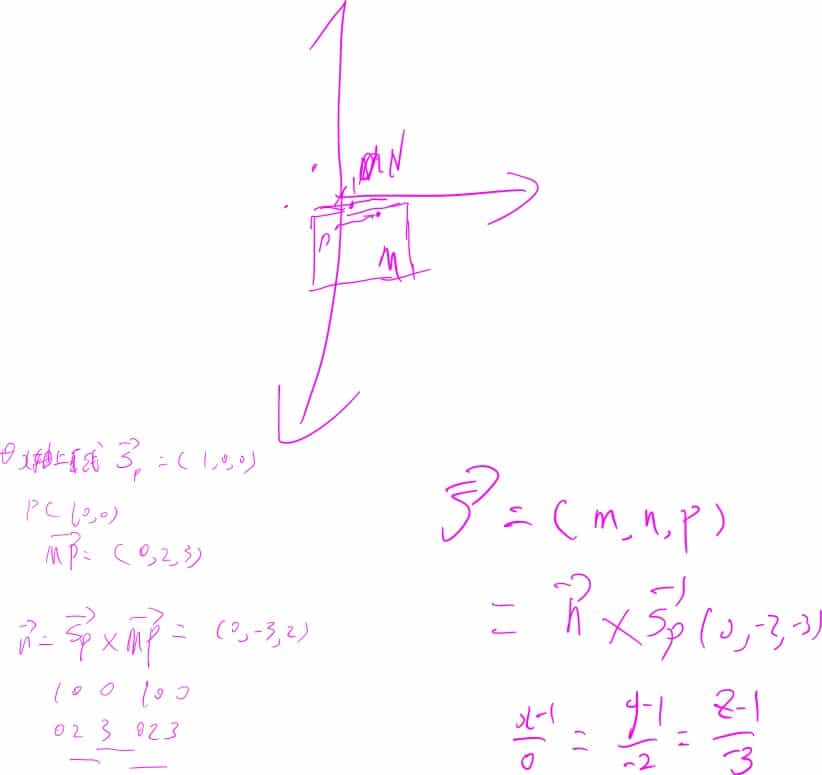 N
n
M
x轴上直线 \vec{S}_p = (1,0,0)
P(1,0,0)
\vec{MP} = (0,2,3)
\vec{n} = \vec{S_p} × \vec{MP} = (0,-3,2)
1 0 0 1 0 0
0 2 3 0 2 3
\vec{S} = (m,n,p)
= \vec{n} × \vec{S_p} (0,-2,-3)
\frac{x-1}{0} = \frac{y-1}{-2} = \frac{z-1}{-3}